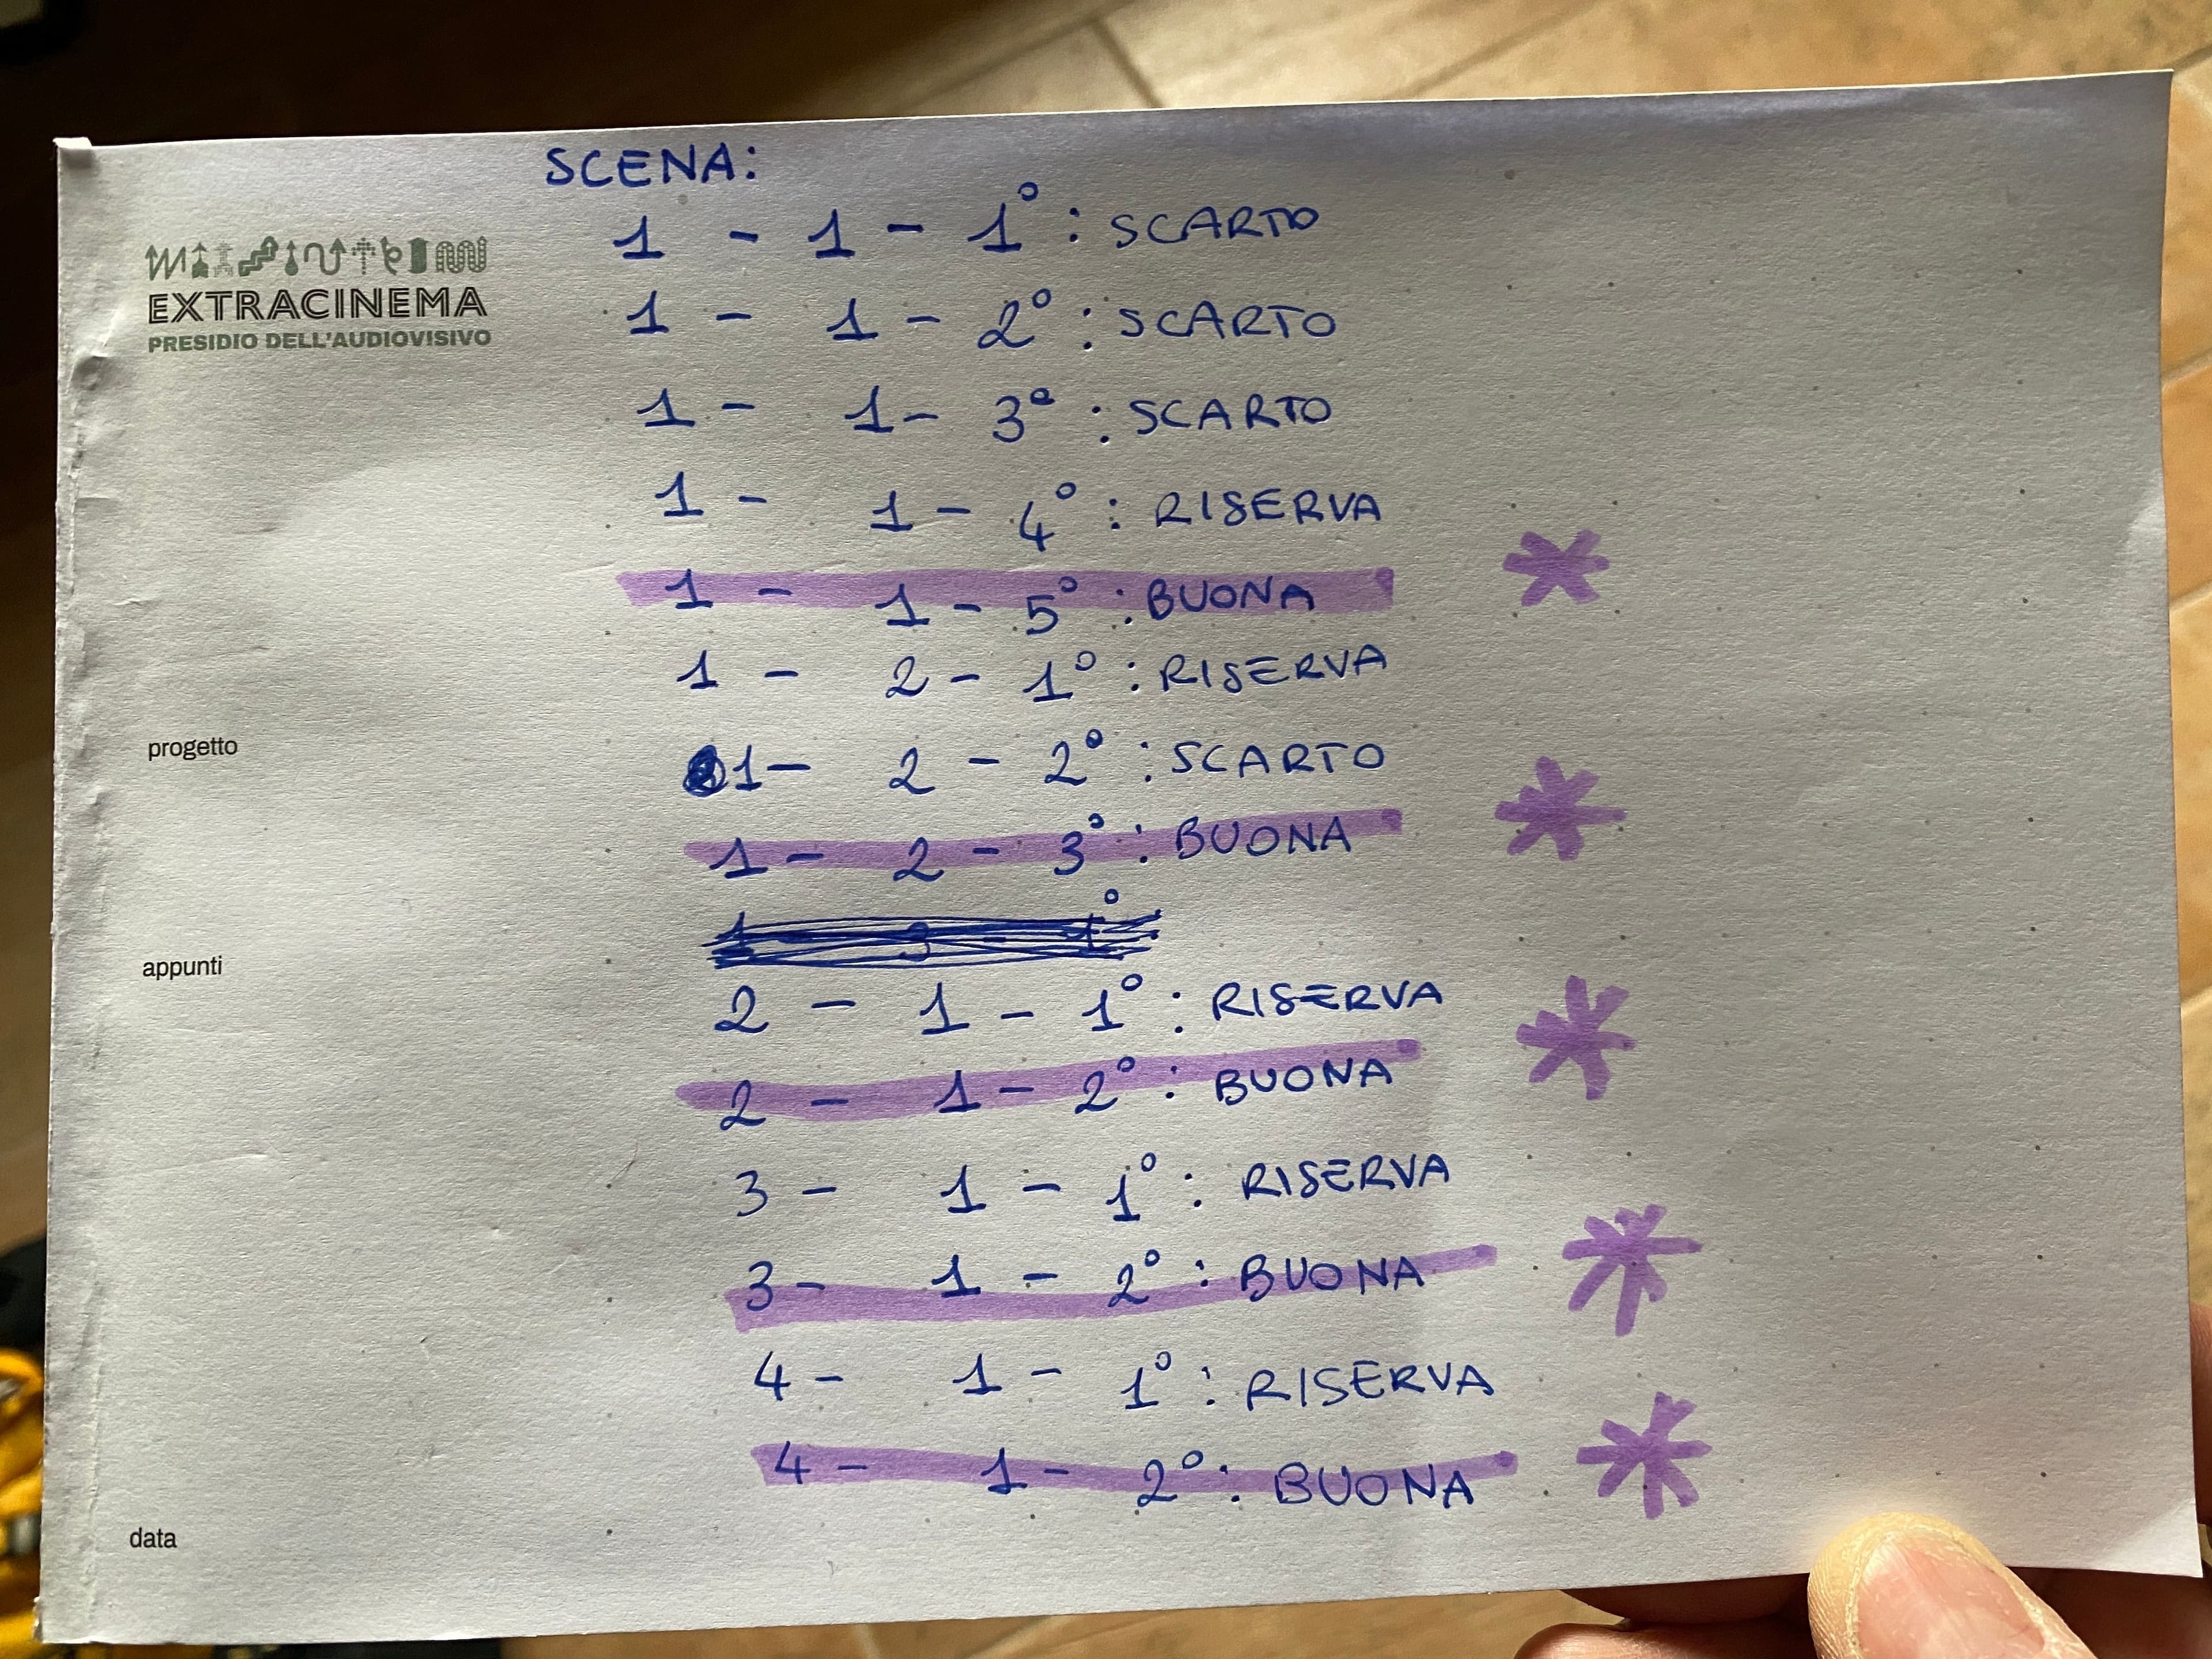 SCENA:
1 - 1 - 1° : SCARTO
EXTRACINEMA
PRESIDIO DELL'AUDIOVISIVO
1 - 1 - 2° : SCARTO
1 - 1 - 3° : SCARTO
1 - 1 - 4° : RISERVA
1 - 1 - 5° : BUONA
1 - 2 - 1° : RISERVA
progetto
1 - 2 - 2° : SCARTO
1 - 2 - 3° : BUONA
appunti
2 - 1 - 1° : RISERVA
2 - 1 - 2° : BUONA
3 - 1 - 1° : RISERVA
3 - 1 - 2° : BUONA
4 - 1 - 1° : RISERVA
4 - 1 - 2° : BUONA
data